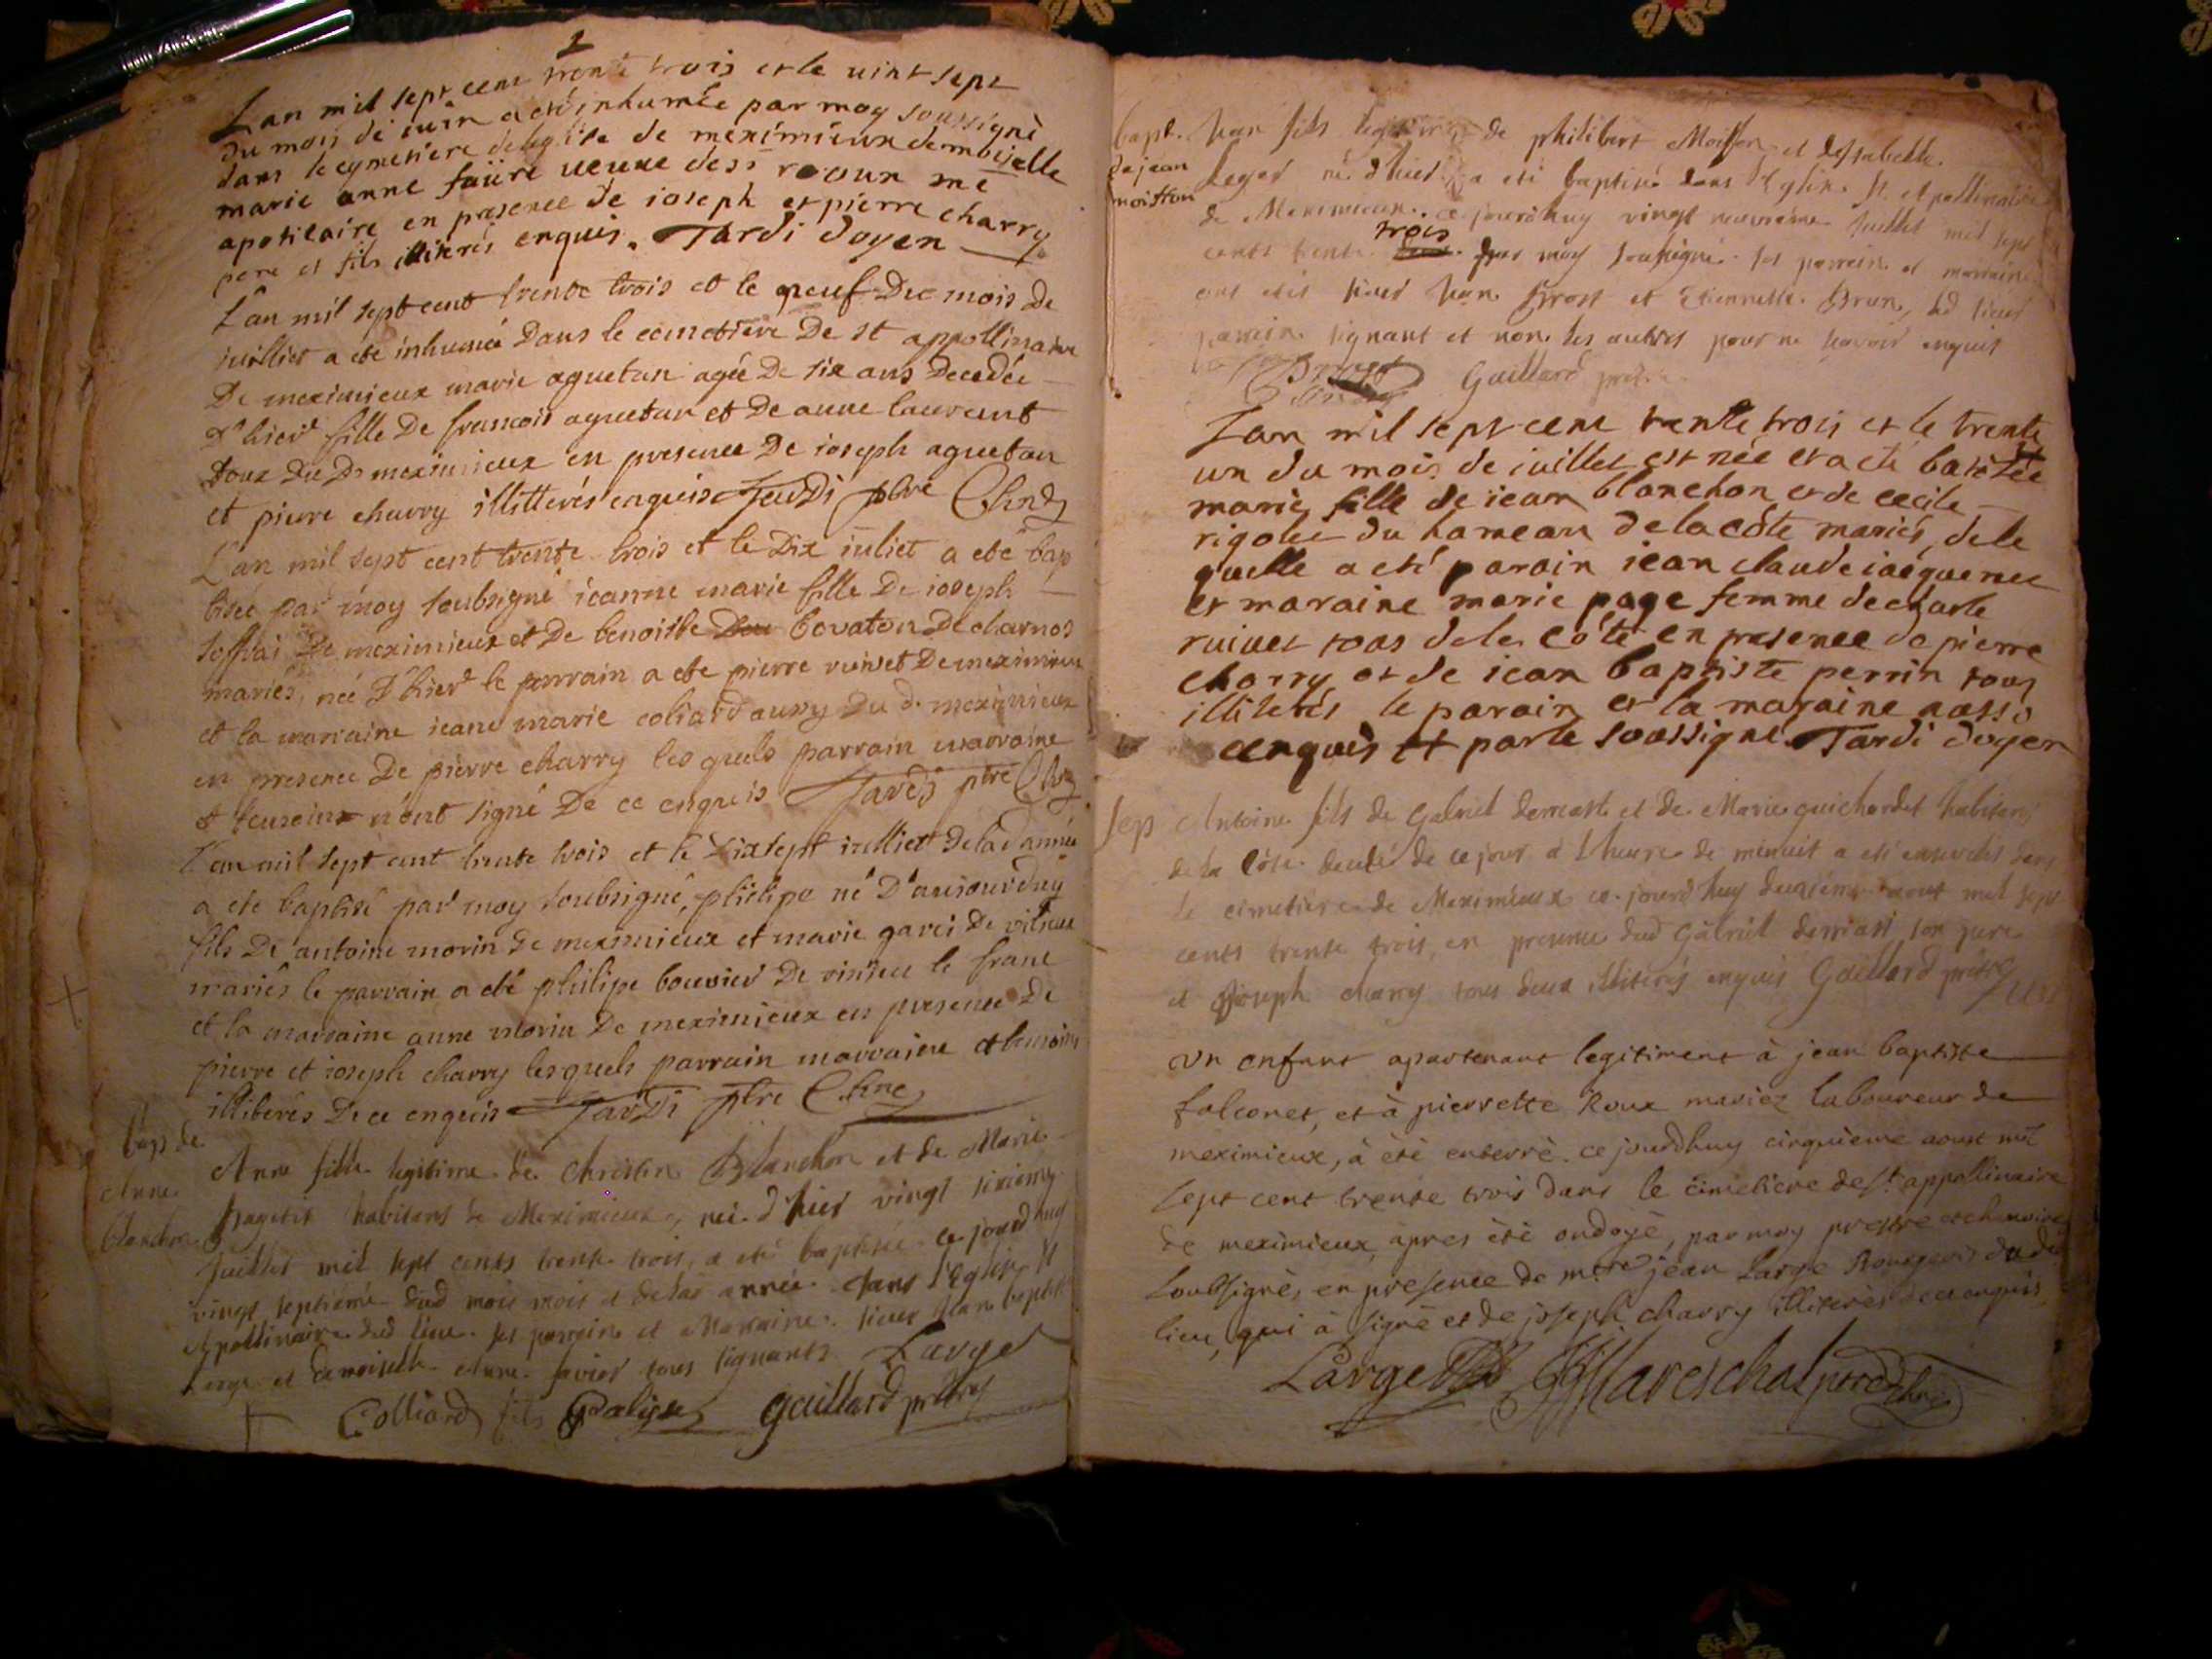 L'an mil sept cent trente trois et le vint sept
du mois de iuin a eté inhumée par moy soussigné
dans le cymetiere de leglise de meximieux demoiselle
marie anne faure veuve de sr me
apoticaire en presence de ioseph et pierre charry
pere et fils illiterés enquis. Tardi doyen
L'an mil sept cent trente trois et le neuf du mois de
iuilliet a ete inhumée dans le cemetiere De st appollinaire
De meximieux marie aguetan agée De six ans Decedée
D'hier fille De francois aguetan et De anne laurent
tous du d. meximieux en presence De ioseph aguetan
et pierre charry illitterés enquis Tardi ptre
L'an mil sept cent trente trois et le Dix iuliet a eté bap
tisée par moy soubsigné ieanne marie fille De ioseph
De meximieux et De benoiste bovaton De charnos
mariés, née D'hier le parrain a ete pierre ruivet De meximieux
et la marraine ieane marie coliard aussy Du d. meximieux
en presence De pierre charry lesquels parrain marraine
et temoins n'ont signé De ce enquis Tardi ptre
L'an mil sept cent trente trois et le Dixsept iulliet De lad année
a ete baptisé par moy soubsigné, philipe né D'auiourd'uy
fils De antoine morin De meximieux et marie garci De
mariés le parrain a eté philipe bouvier De le franc
et la marraine anne morin De meximieux en presence De
pierre et ioseph charry lesquels parrain marraine et temoins
illiterés De ce enquis Tardi ptre
bap. de
Anne
blanchon
Anne fille legitime de Christin Blanchon et de Marie
pagetit habitans de Meximieux, née d'hier vingt sixieme
Juillet mil sept cents trente trois, a eté baptisée ce jourd'huy
vingt septiême dud mois et de lad année dans l'Eglise St
Apollinaire dud lieu. ses parrain et Marraine sieur Jean baptiste
large et demoiselle Anne favier tous signants Large
Colliard fils Galien gaillard prêtre
bapt.
de jean
moisson
Jean fils legitime de philibert Moisson et d'essabelle
Leger né d'hier a eté baptisé dans l'Eglise St Apollinaire
de Meximieux ce jourd'huy vingt neuvieme Juillet mil sept
cents trente trois par moy soussigné. ses parrain et marraine
ont etés sieur Jean Brost et Etiennette Brun, led sieur
parrain signant et non les autres pour ne savoir enquis
Brost Gaillard prêtre
L'an mil sept cent trente trois et le trente
un du mois de iuillet est née et a eté batisée
marie fille de iean blanchon et de cecile
rigolet du hameau de la côte mariés, de la
quelle a eté parain iean claude iacquenet
et maraine marie page femme de charle
ruivet tous de la côte en presence de pierre
charry et de iean baptiste perrin tous
illiterés le parain et la maraine aussy
enquis et par le soussigné. Tardi doyen
Sep
Antoine fils de Gabriel et de Marie guichardet habitans
de la Côte decedé de ce jour a l'heure de minuit a eté enseveli dans
le cimetiere de Meximieux ce jourd'huy deuxième aoust mil sept
cents trente trois, en presence dud Gabriel son pere
et Joseph charry tous deux illiterés enquis Gaillard prêtre
Un enfant apartenant legitiment à jean baptiste
falconet, et à pierrette Roux mariez laboureur de
meximieux, à étè enterrè ce jourdhuy cinquieme aoust mil
sept cent trente trois dans le cimetiere de St appollinaire
de meximieux, apres étè ondoyè, par moy prestre et chanoine
soubsignè, en presence de mtre jean Large Bourgeois dudit
lieu, qui à signè et de joseph charry illiterès de ce enquis
Large Mareschal ptre